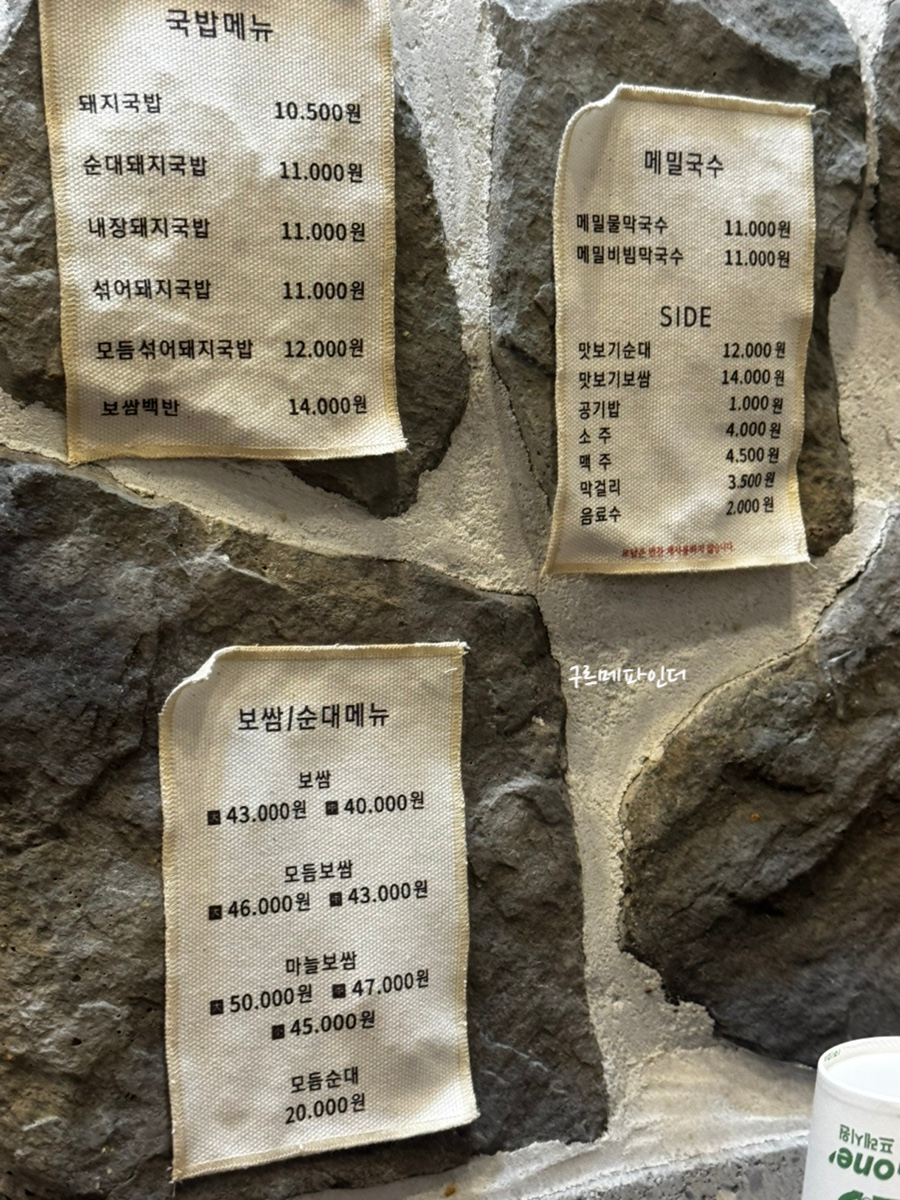 국밥메뉴
돼지국밥 10.500원
순대돼지국밥 11.000원
내장돼지국밥 11.000원
섞어돼지국밥 11.000원
모듬섞어돼지국밥 12.000원
보쌈백반 14.000원
메밀국수
메밀물막국수 11.000원
메밀비빔막국수 11.000원
SIDE
맛보기순대 12.000원
맛보기보쌈 14.000원
공기밥 1.000원
소 주 4.000원
맥 주 4.500원
막걸리 3.500원
음료수 2.000원
반찬 재사용하지 않습니다
구르메파인더
보쌈/순대메뉴
보쌈
大 43.000원 中 40.000원
모듬보쌈
大 46.000원 中 43.000원
마늘보쌈
大 50.000원 中 47.000원
45.000원
모듬순대
20.000원
one
프레시원